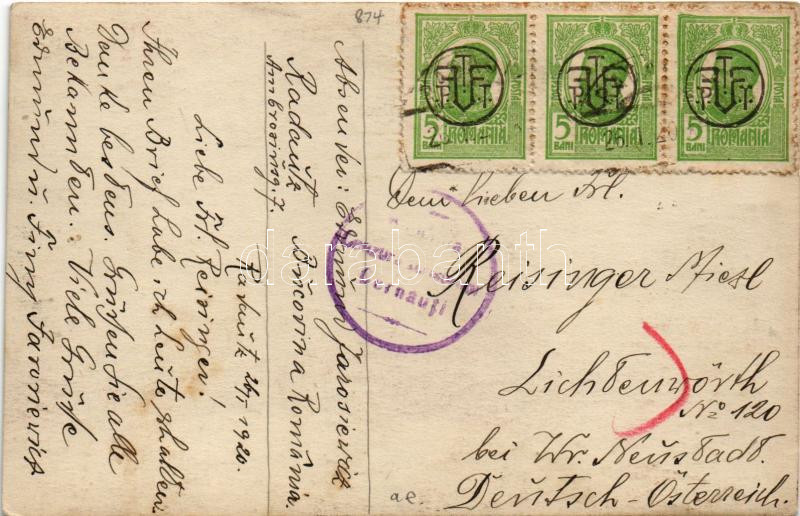 874
5 5 5
BANI ROMANIA BANI ROMANIA BANI ROMANIA
P.T.T. P.T.T. P.T.T.
Absender: Edmund Jarosiewicz
Radautz Bucovina România.
Ambrosiusg. 7.
Radautz 24/I 1920.
Liebe Frl. Reisinger!
Ihren Brief habe ich heute erhalten.
Danke bestens. Grüßen Sie alle
Bekannten. Viele Grüße
Edmund u. Jarosiewicz
Dem lieben Frl.
Reisinger Miezl
Lichtenwörth
No 120
bei Wr. Neustadt.
Deutsch-Österreich.
Cernauți
a.e.
darabanth.com